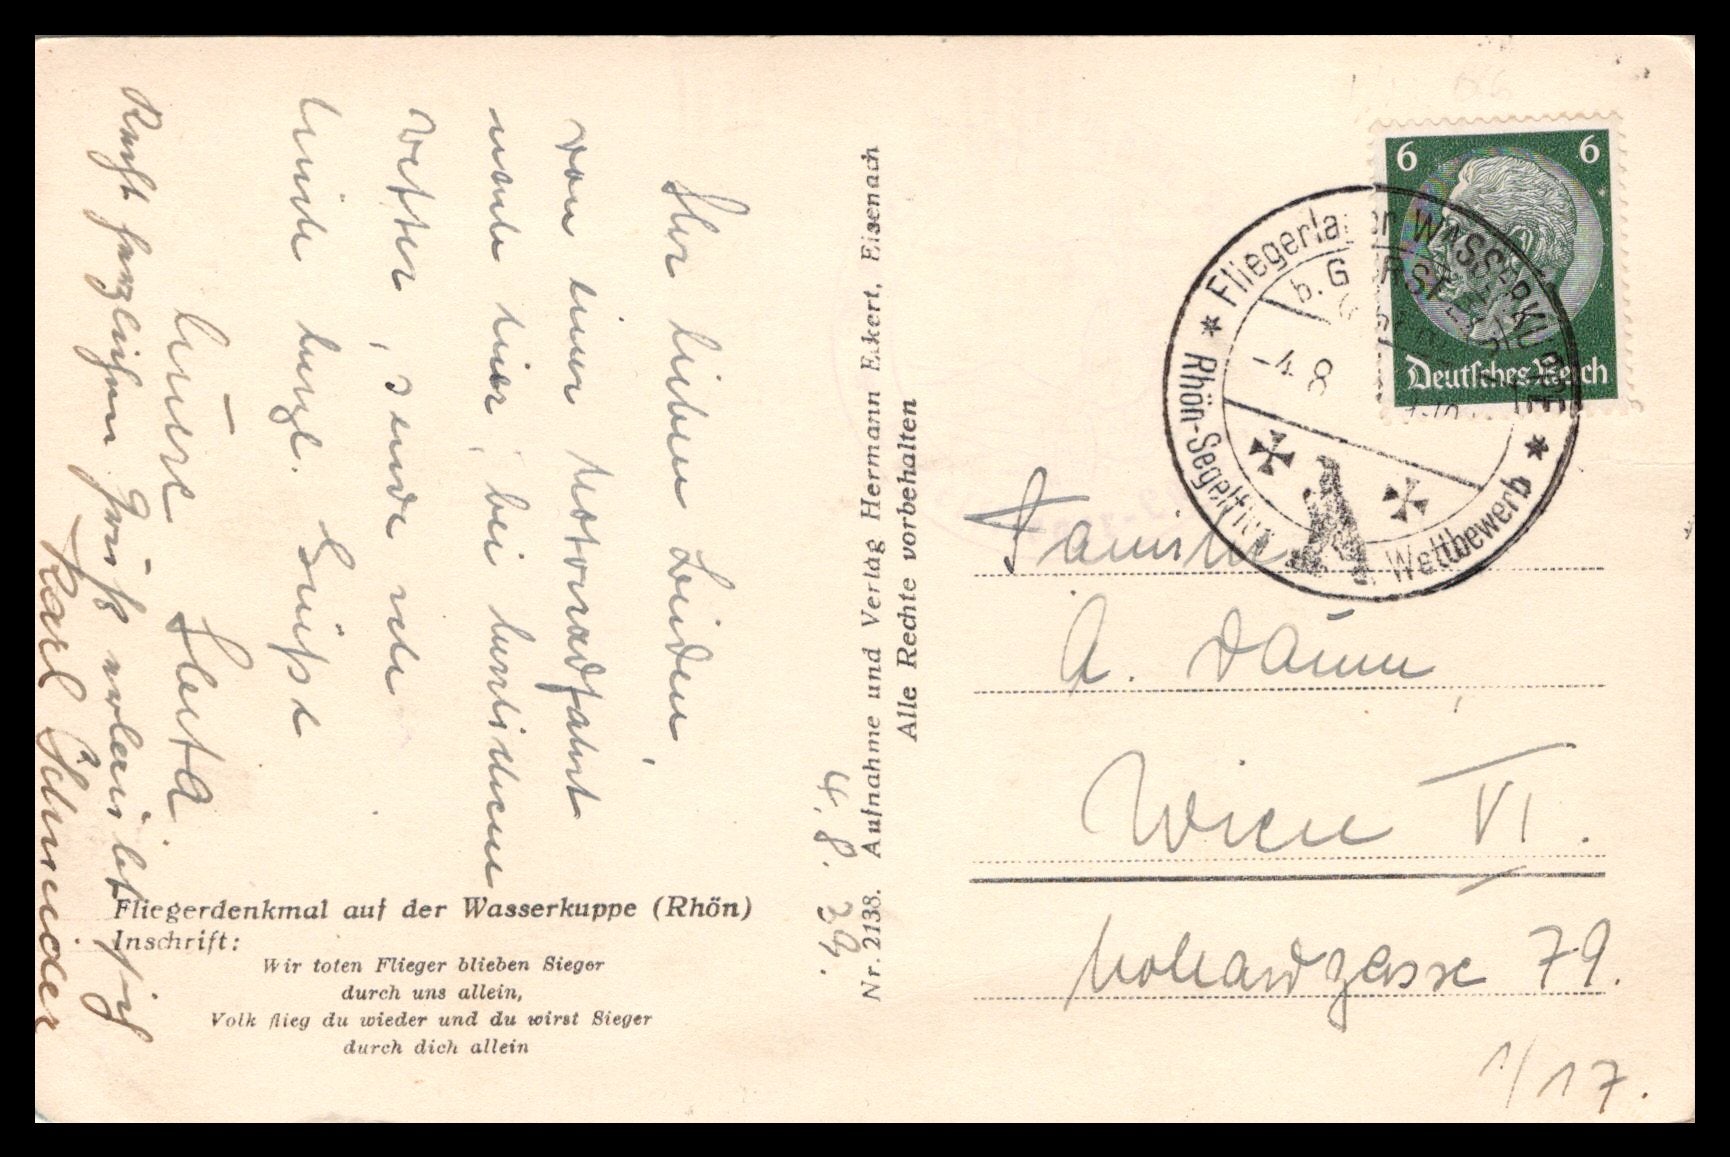 4. 8. 39.
Ihr lieben Beiden,
von einer Motorradfahrt
nach hier, bei herrlichem
Wetter, sende ich
Euch herzl. Grüsse
Eure Herta
Recht herzlichen Gruß
Karl Schneider
Fliegerdenkmal auf der Wasserkuppe (Rhön)
Inschrift:
Wir toten Flieger blieben Sieger
durch uns allein,
Volk flieg du wieder und du wirst Sieger
durch dich allein
Nr. 2138. Aufnahme und Verlag Hermann Eckert, Eisenach
Alle Rechte vorbehalten
6 6
Deutsches Reich
* Fliegerlager WASSERKUPPE *
b. GERSFELD
-4. 8
Rhön-Segelflug Wettbewerb
Familie
A. Daum
Wien VI.
Mollardgasse 79.
1/17.